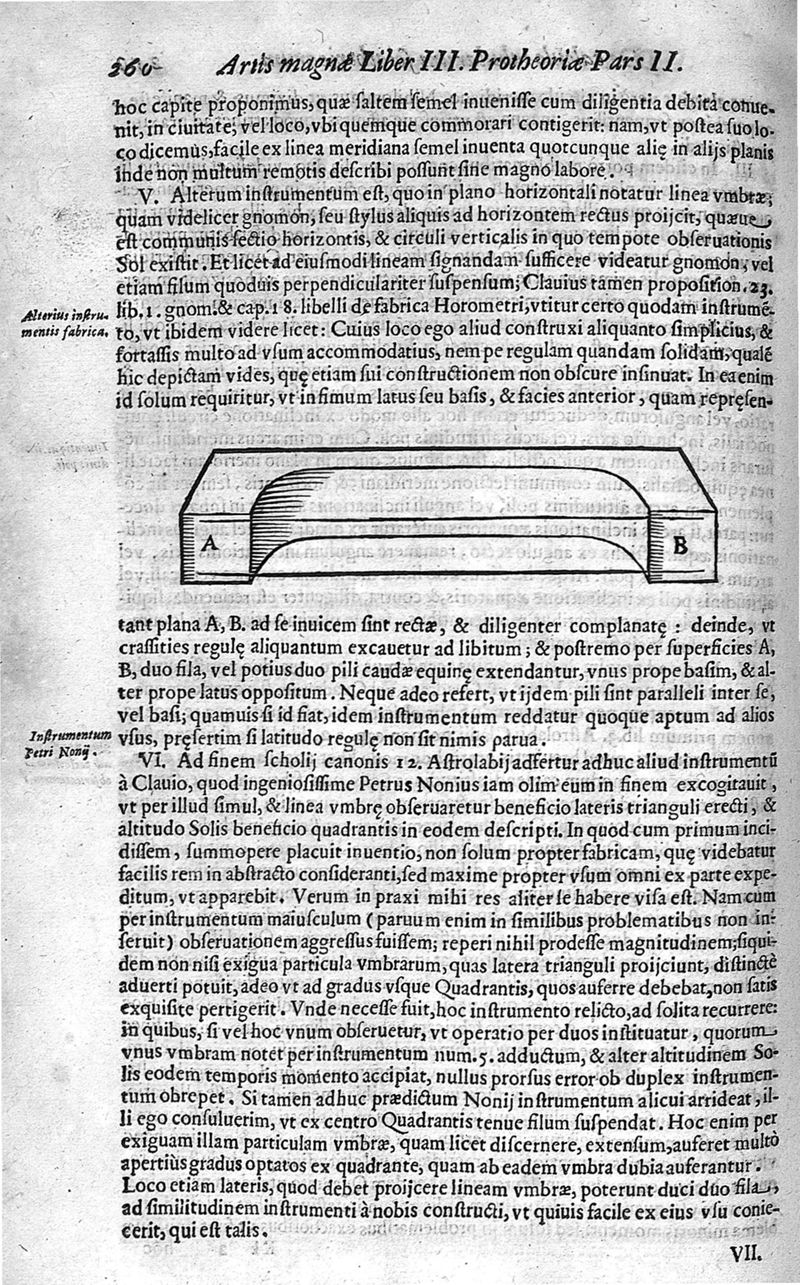 260 Artis magnæ Liber III. Protheoriæ Pars II.
hoc capite proponimus, quæ saltem semel inuenisse cum diligentia debita conue-
nit, in ciuitate, vel loco, vbi quemque commorari contigerit: nam, vt postea suo lo-
co dicemus, facile ex linea meridiana semel inuenta quotcunque alię in alijs planis
inde non multum remotis describi possunt sine magno labore.
V. Alterum instrumentum est, quo in plano horizontali notatur linea vmbræ;
quam videlicet gnomon, seu stylus aliquis ad horizontem rectus proijcit, quæue
est communis sectio horizontis, & circuli verticalis in quo tempote obseruationis
Sol existit. Et licet ad eiusmodi lineam signandam sufficere videatur gnomon, vel
etiam filum quoduis perpendiculariter suspensum; Clauius tamen proposition. 23.
Alterius instru-
mentis fabrica.
lib. 1. gnom. & cap. 18. libelli de fabrica Horometri, vtitur certo quodam instrumē-
to, vt ibidem videre licet: Cuius loco ego aliud construxi aliquanto simplicius, &
fortassis multo ad vsum accommodatius, nempe regulam quandam solidam, qualē
hic depictam vides, quę etiam sui constructionem non obscure insinuat. In ea enim
id solum requiritur, vt infimum latus seu basis, & facies anterior, quam repręsen-
A B
tant plana A, B. ad se inuicem sint rectæ, & diligenter complanatę: deinde, vt
crassities regulę aliquantum excauetur ad libitum; & postremo per superficies A,
B, duo fila, vel potius duo pili caudæ equinę extendantur, vnus prope basim, & al-
ter prope latus oppositum. Neque adeo refert, vt ijdem pili sint paralleli inter se,
vel basi; quamuis si id fiat, idem instrumentum reddatur quoque aptum ad alios
Instrumentum
Petri Nonij.
vsus, pręsertim si latitudo regulę non sit nimis parua.
VI. Ad finem scholij canonis 12. Astrolabij adfertur adhuc aliud instrumentū
à Clauio, quod ingeniosissime Petrus Nonius iam olim eum in finem excogitauit,
vt per illud simul, & linea vmbrę obseruaretur beneficio lateris trianguli erecti, &
altitudo Solis beneficio quadrantis in eodem descripti. In quod cum primum inci-
dissem, summopere placuit inuentio, non solum propter fabricam, quę videbatur
facilis rem in abstracto consideranti, sed maxime propter vsum omni ex parte expe-
ditum, vt apparebit. Verum in praxi mihi res aliter se habere visa est. Nam cum
per instrumentum maiusculum (paruum enim in similibus problematibus non in-
seruit) obseruationem aggressus fuissem; reperi nihil prodesse magnitudinem; siqui-
dem non nisi exigua particula vmbrarum, quas latera trianguli proijciunt, distinctè
aduerti potuit, adeo vt ad gradus vsque Quadrantis, quos auferre debebat, non satis
exquisite pertigerit. Vnde necesse fuit, hoc instrumento relicto, ad solita recurrere:
in quibus, si vel hoc vnum obseruetur, vt operatio per duos instituatur, quorum
vnus vmbram notet per instrumentum num. 5. adductum, & alter altitudinem So-
lis eodem temporis momento accipiat, nullus prorsus error ob duplex instrumen-
tum obrepet. Si tamen adhuc prædictum Nonij instrumentum alicui arrideat, il-
li ego consuluerim, vt ex centro Quadrantis tenue filum suspendat. Hoc enim per
exiguam illam particulam vmbræ, quam licet discernere, extensum, auferet multò
apertius gradus optatos ex quadrante, quam ab eadem vmbra dubia auferantur.
Loco etiam lateris, quod debet proijcere lineam vmbræ, poterunt duci duo fila,
ad similitudinem instrumenti à nobis constructi, vt quiuis facile ex eius vsu conie-
cerit, qui est talis.
VII.